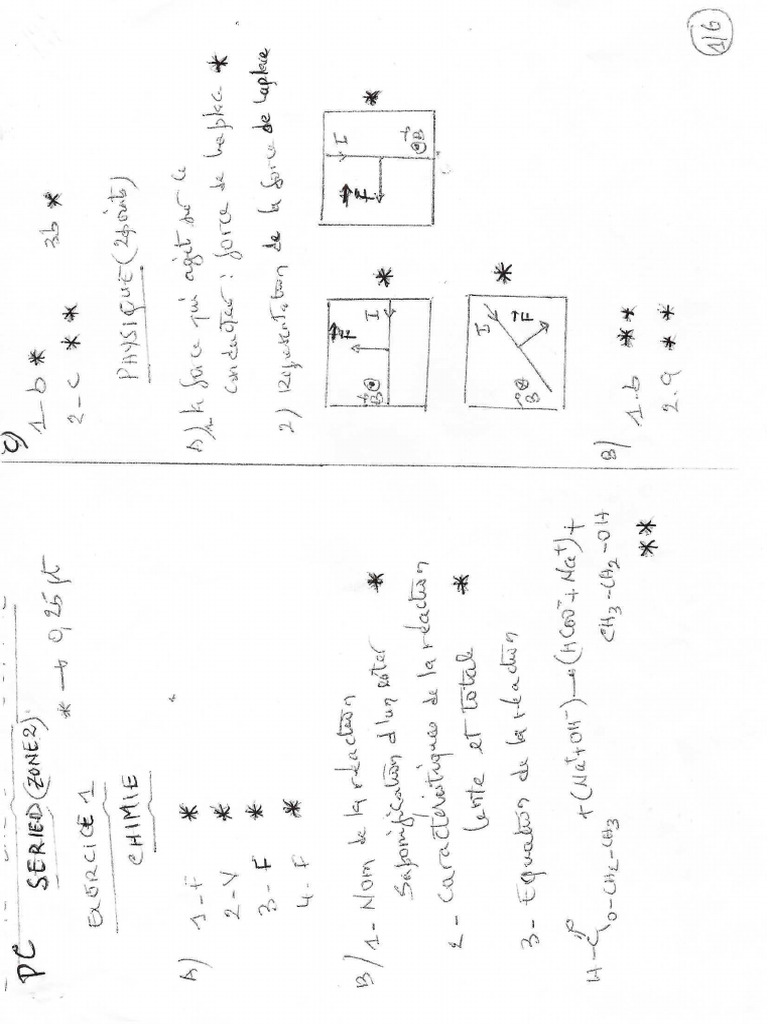 PC SERIE D (ZONE 2)
* → 0,25 pt
EXERCICE 1
CHIMIE
A) 1 - F *
2 - V *
3 - F *
4 - F *
B) 1 - Nom de la réaction
Saponification d'un ester *
2 - Caractéristiques de la réaction
lente et total *
3 - Equation de la réaction
H-C(=O)-O-CH2-CH3 + (Na⁺+OH⁻) → (HCOO⁻+Na⁺) +
CH3-CH2-OH
**
C)
1 - b * 3b *
2 - c * *
PHYSIQUE (2 points)
A) 1) la force qui agit sur ce
conducteur : force de Laplace *
2) Représentation de la force de Laplace
F I B *
F I B *
I F B *
B) 1. b * *
2. a * *
1/6